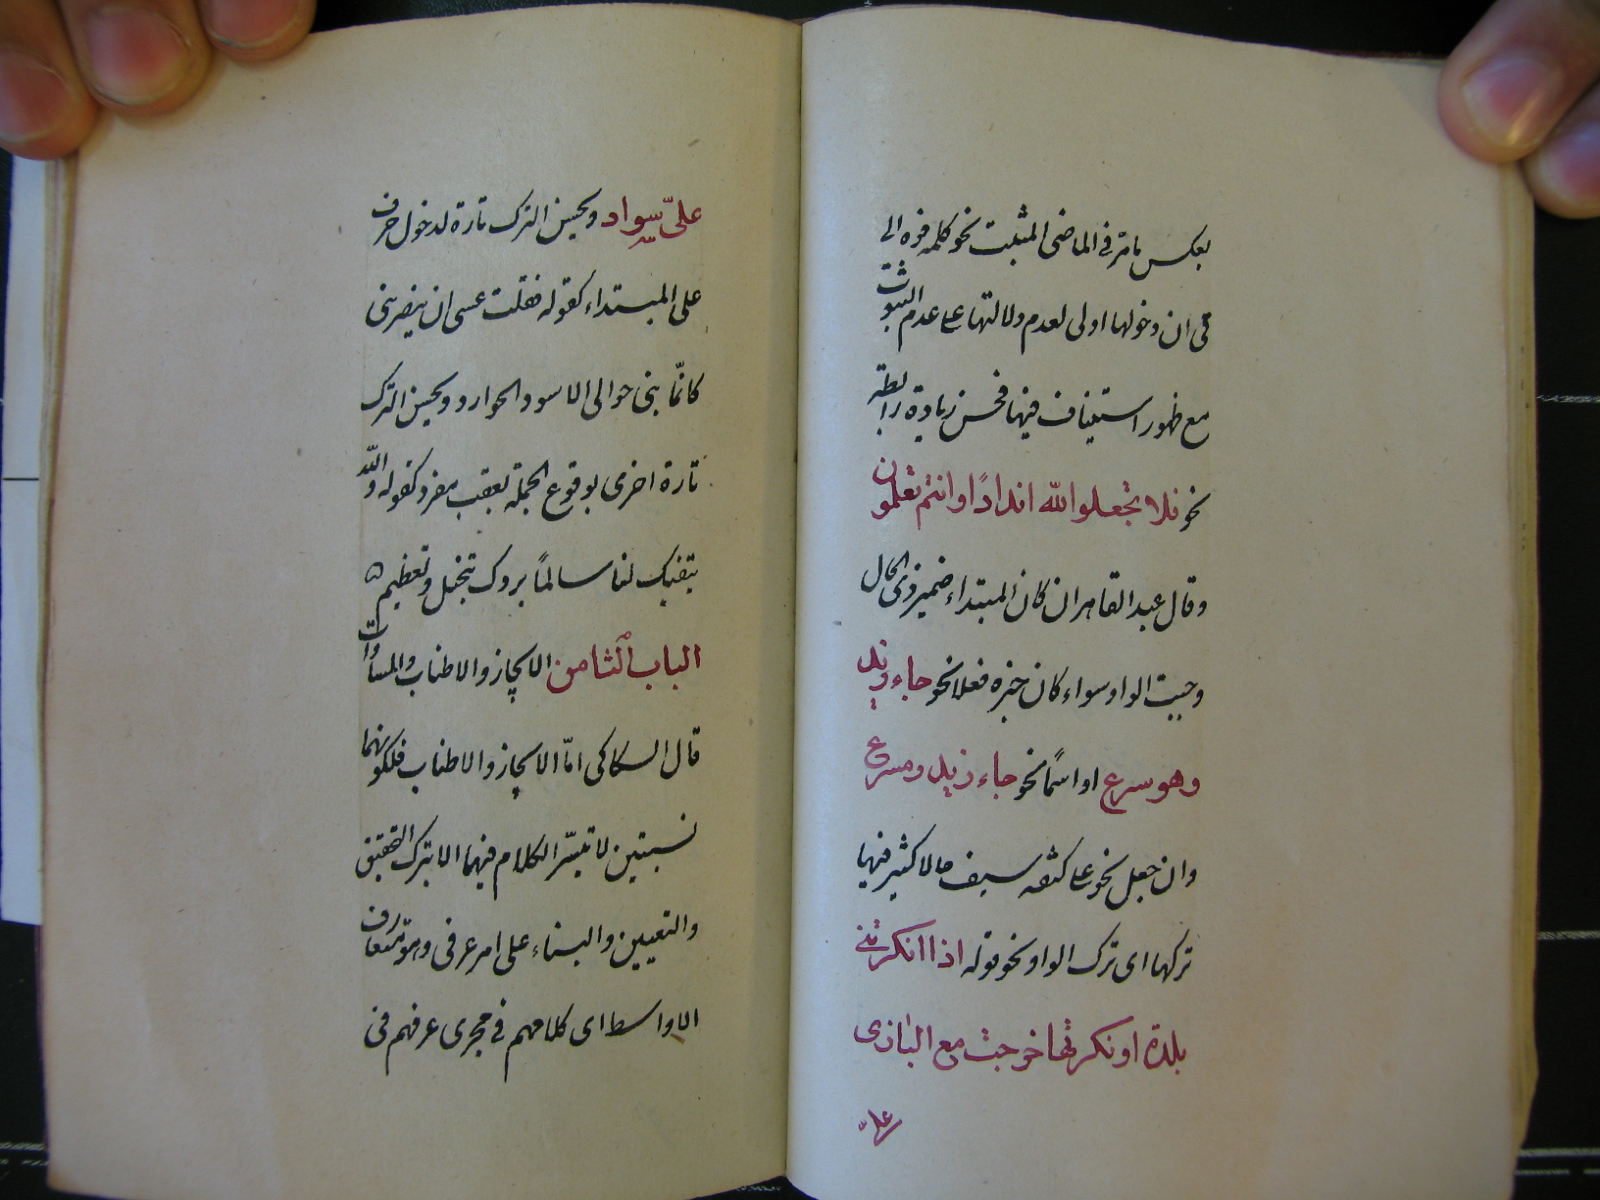 بعكس ما مرّ فی الماضی المثبت نحو كلمه فوه الی
فی ان دخولها اولی لعدم دلالتها علی عدم الثبوت
مع ظهور استیناف فیها فحسن زیادة رابطة
نحو فلا تجعلوا الله اندادًا وانتم تعلمون
وقال عبد القاهر ان كان المبتداء ضمیر ذی الحال
وجبت الواو سواء كان خبره فعلا نحو جاء زید
وهو سرع او اسمًا نحو جاء زید و مسرع
وان جعل نحو علی كتفه سیف حالا كثیر فیها
تركها ای ترك الواو نحو قوله اذا انكرتنی
بلدة او نكرتها خرجت مع البازی
علیّ
علیّ سواد ویحسن الترك تارة لدخول حرف
علی المبتداء كقوله فقلت عسی ان
كانّما بنی حوالی الاسود الحوارد ویحسن الترك
تارة اخری بوقوع الجملة بعقب مفرد كقوله والله
یبقیك لنا سالمًا بروك تبجیل وتعظیم ۵
الباب الثامن الایجاز والاطناب والمساوات
قال السكاكی امّا الایجاز والاطناب فلكونهما
نسبیین لا تیسّر الكلام فیهما الا بترك التحقیق
والتعیین والبناء علی امر عرفی وهو متعارف
الاواسط ای كلامهم فی مجری عرفهم فی